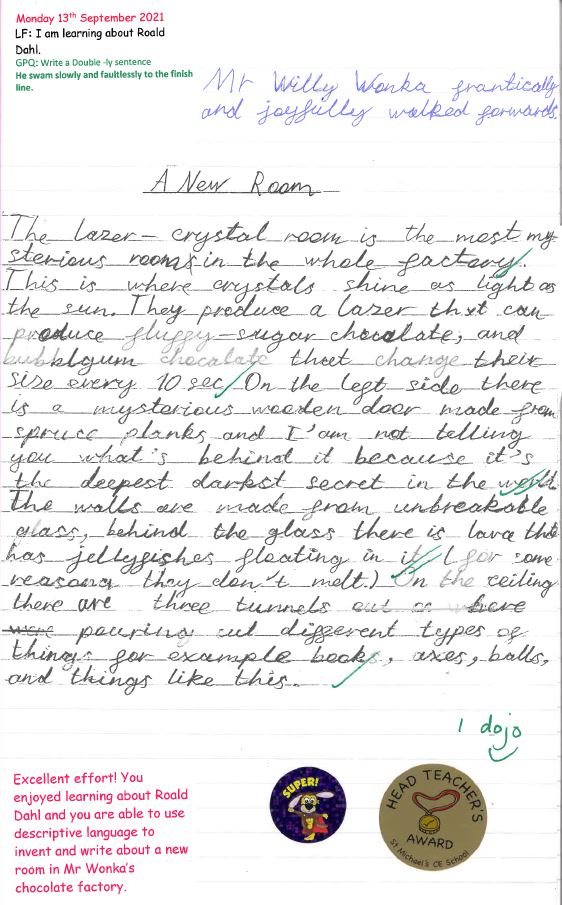 Monday 13th September 2021
LF: I am learning about Roald
Dahl.
GPQ: Write a Double -ly sentence
He swam slowly and faultlessly to the finish
line.
Mr Willy Wonka frantically
and joyfully walked forwards.
A New Room
The lazer-crystal room is the most my
sterious room in the whole factory.
This is where crystals shine as light as
the sun. They produce a lazer that can
produce fluffy-sugar chocolate, and
bubblegum chocolate that change their
size every 10 sec. On the left side there
is a mysterious wooden door made from
spruce planks and I'am not telling
you what's behind it because it's
the deepest darkst secret in the world.
The walls are made from unbreakable
glass, behind the glass there is lava
has jellyfishes floating in it (for some
reason they don't melt.) On the ceiling
there are three tunnels
pouring out different types of
things for example books, axes, balls,
and things like this.
1 dojo
Excellent effort! You
enjoyed learning about Roald
Dahl and you are able to use
descriptive language to
invent and write about a new
room in Mr Wonka's
chocolate factory.
SUPER!
HEAD TEACHER'S
AWARD
St Michael's CE School